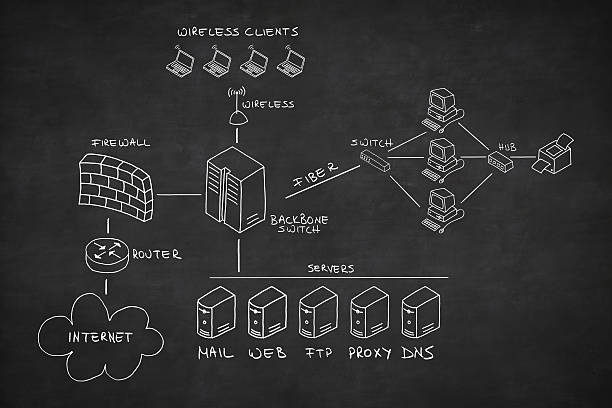 WIRELESS CLIENTS
WIRELESS
FIREWALL
SWITCH
HUB
FIBER
BACKBONE
SWITCH
ROUTER
SERVERS
INTERNET
MAIL WEB FTP PROXY DNS